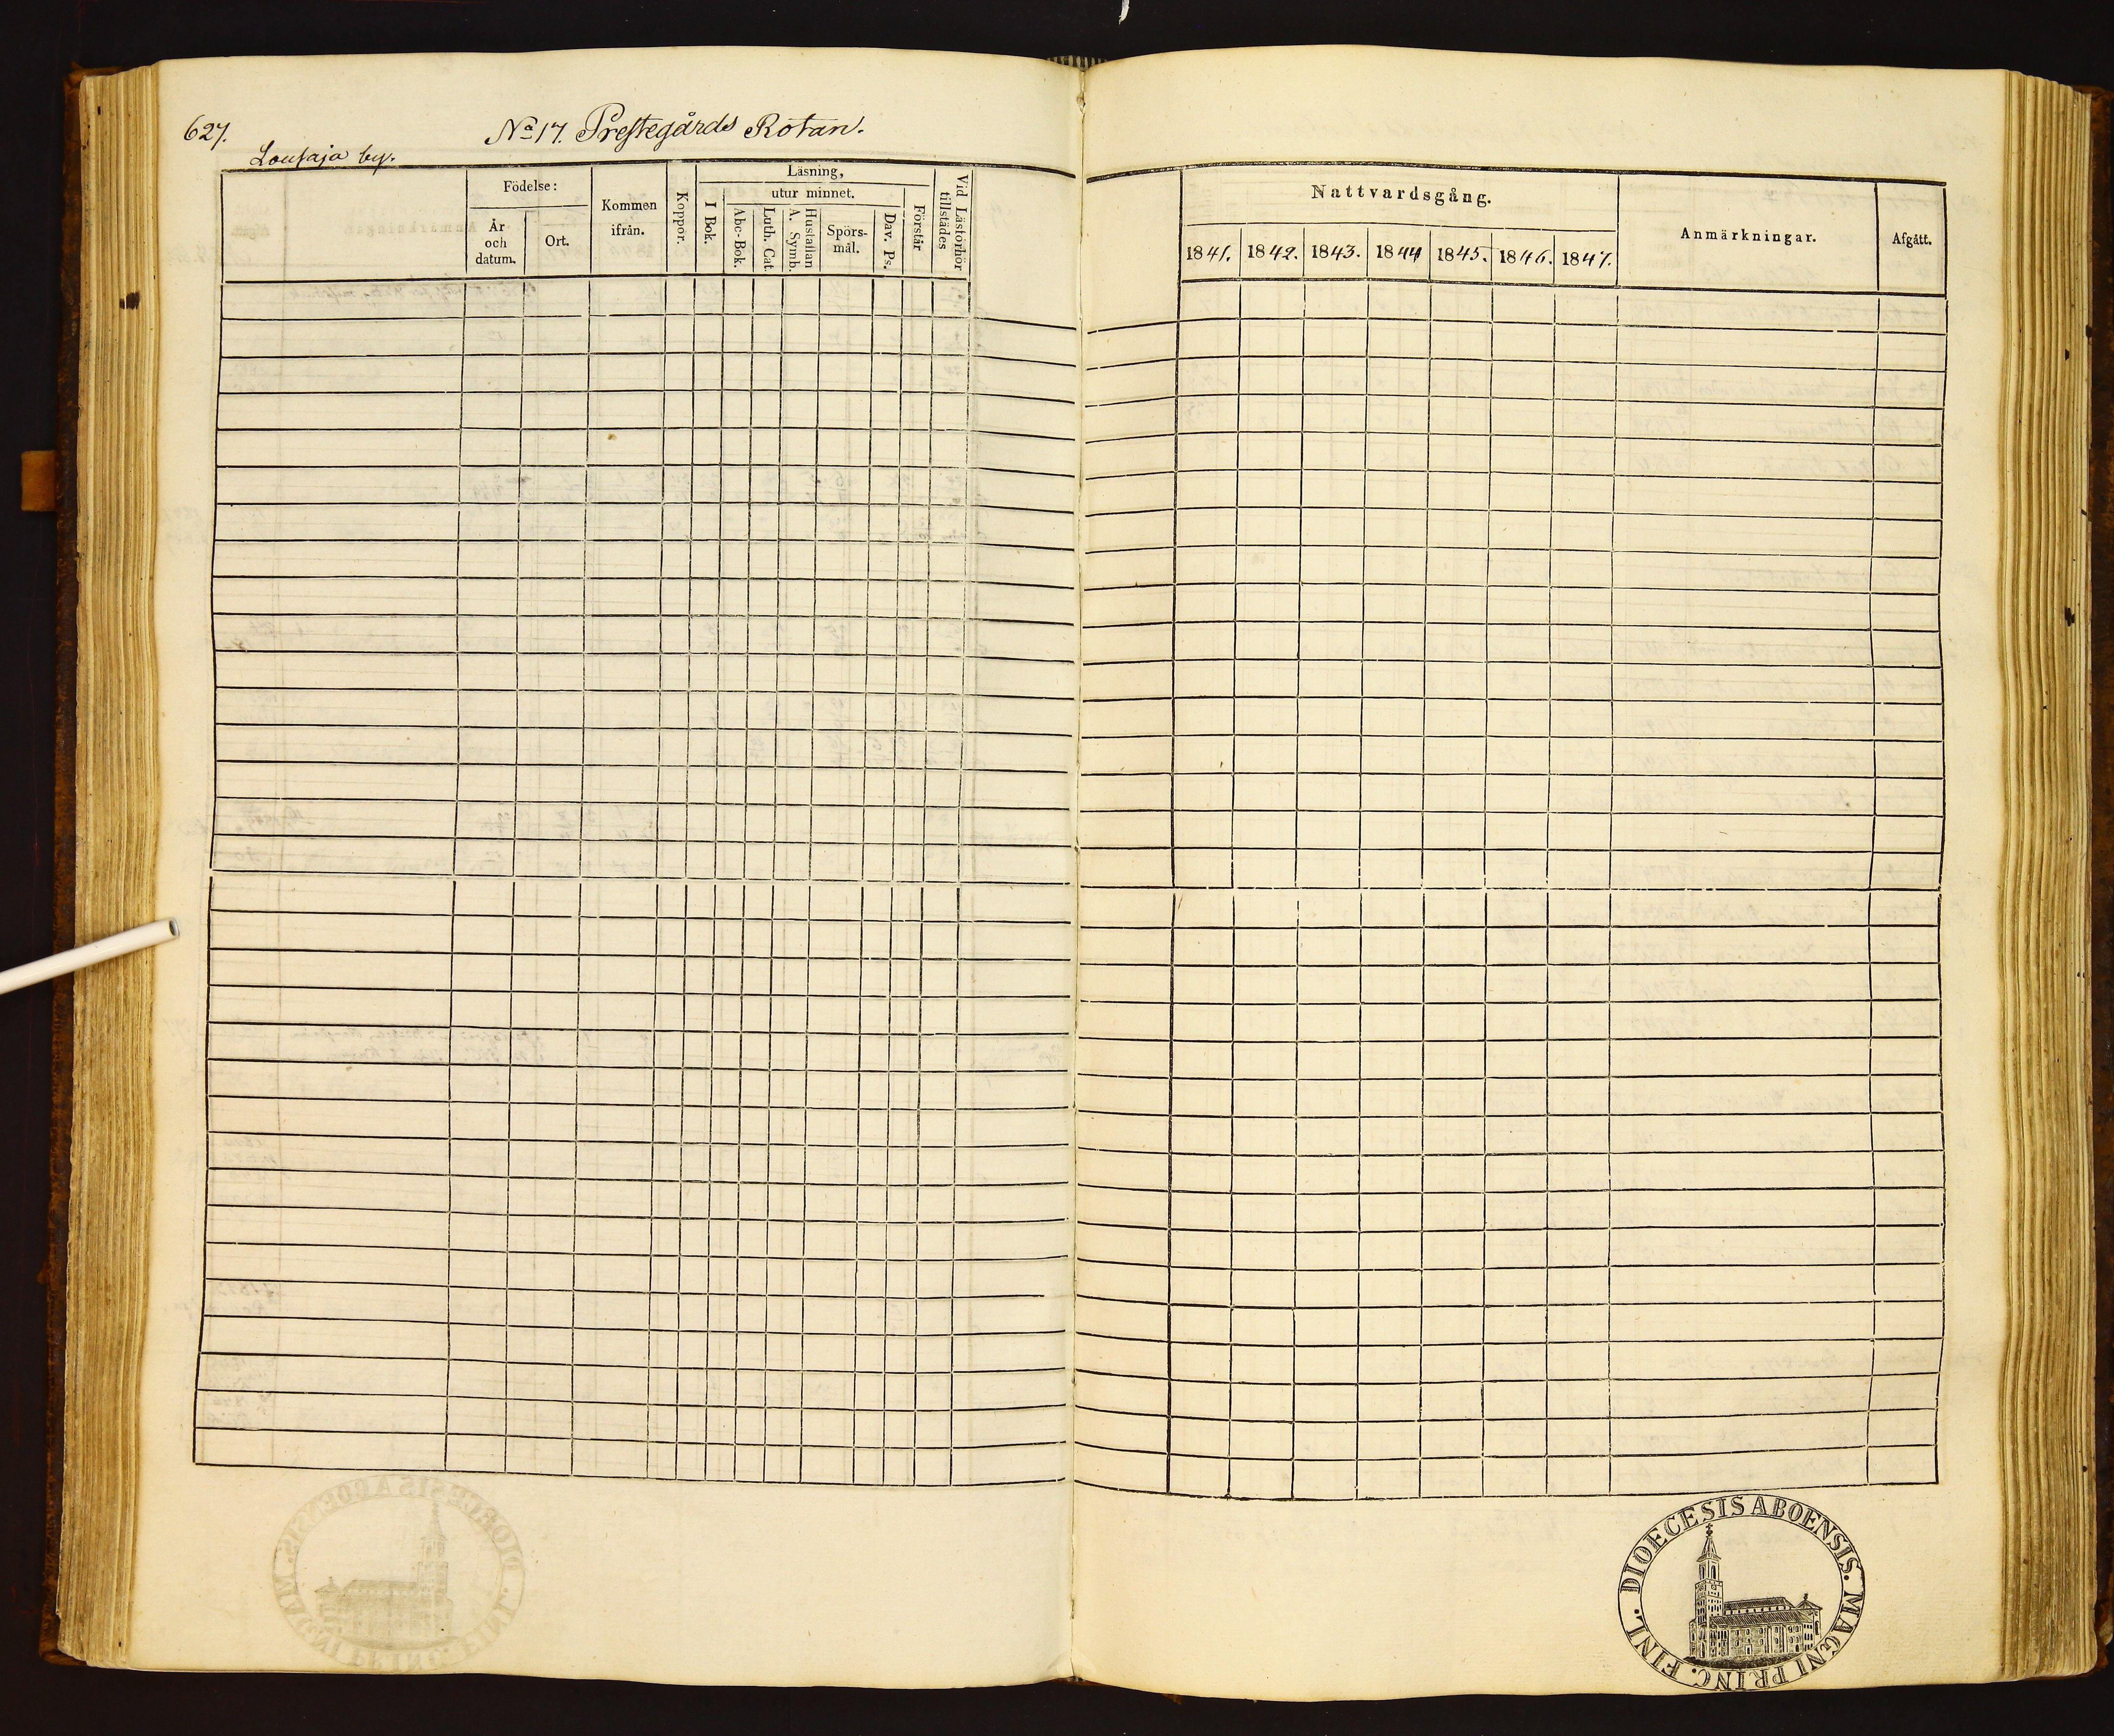 627.
No 17. Prestegårds Rotan.
Lousaja by.
Födelse:
År och datum.
Ort.
Kommen ifrån.
Koppor.
Läsning,
I Bok.
utur minnet.
Abc-Bok.
Luth. Cat.
Hustaflan A. Symb.
Spörs-mål.
Dav. Ps.
Förstår
Vid Läsförhör tillstädes
Nattvardsgång.
1841. 1842. 1843. 1844 1845. 1846. 1847.
Anmärkningar.
Afgått.
DIOECESIS ABOENSIS. MAGNI PRINC. FINL.